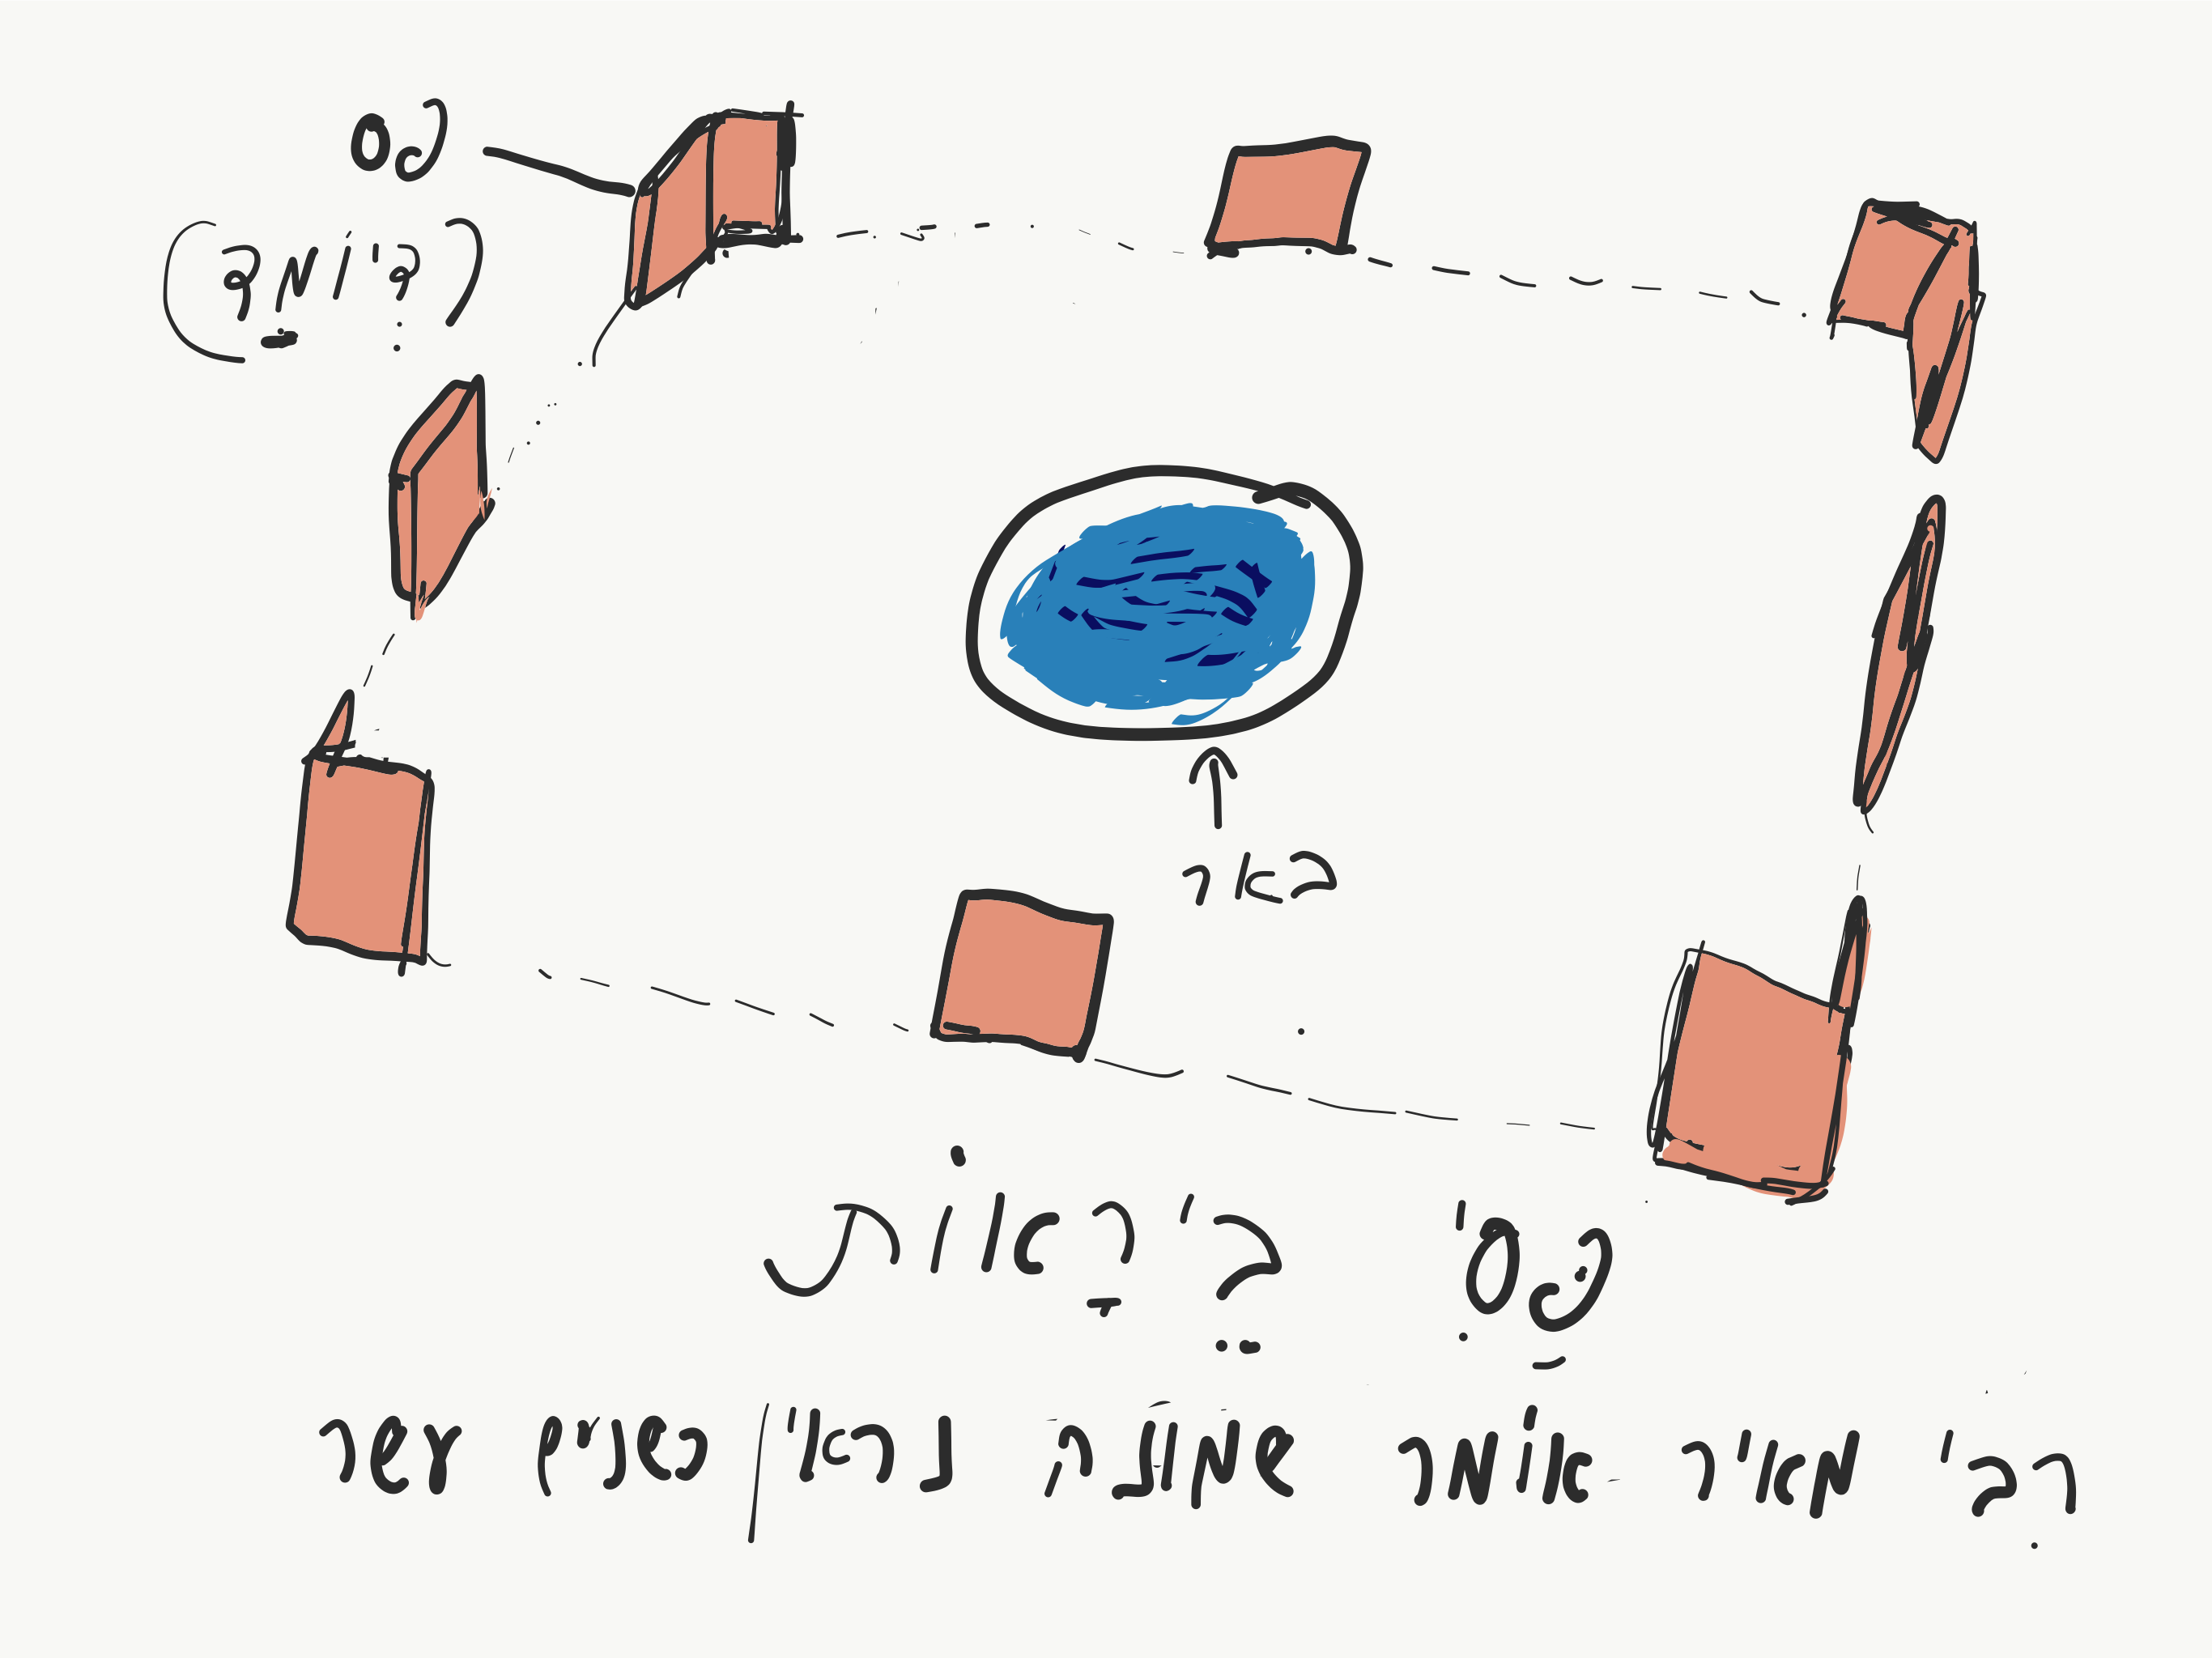 פס
(דְיוֹמַד)
באר
פַּסִי בֵירָאוֹת
רִבי מאיר אוֹמר שמונה נראין כשנים עשר